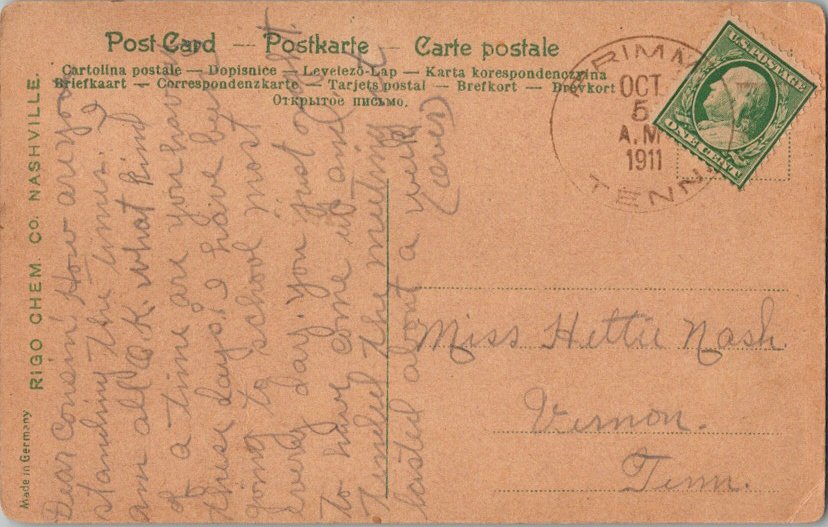 Post Card — Postkarte — Carte postale
Cartolina postale — Dopisnice — Levelező-Lap — Karta korespondenczyjna
Briefkaart — Correspondenzkarte — Tarjets postal — Brefkort — Brevkort
Открытое письмо.
RIGO CHEM. CO. NASHVILLE.
Made in Germany
OCT
5
A.M
1911
TENN.
U.S. POSTAGE
ONE CENT
Dear Cousin: How are you
standing the times. I
am all O.K. what kind
of a time are you having
these days. I have been
going to school most
every day. you just ought
to have come up and
tended the meeting it
lasted about a week
(over)
Miss Hettie Nash.
Vernon.
Tenn.